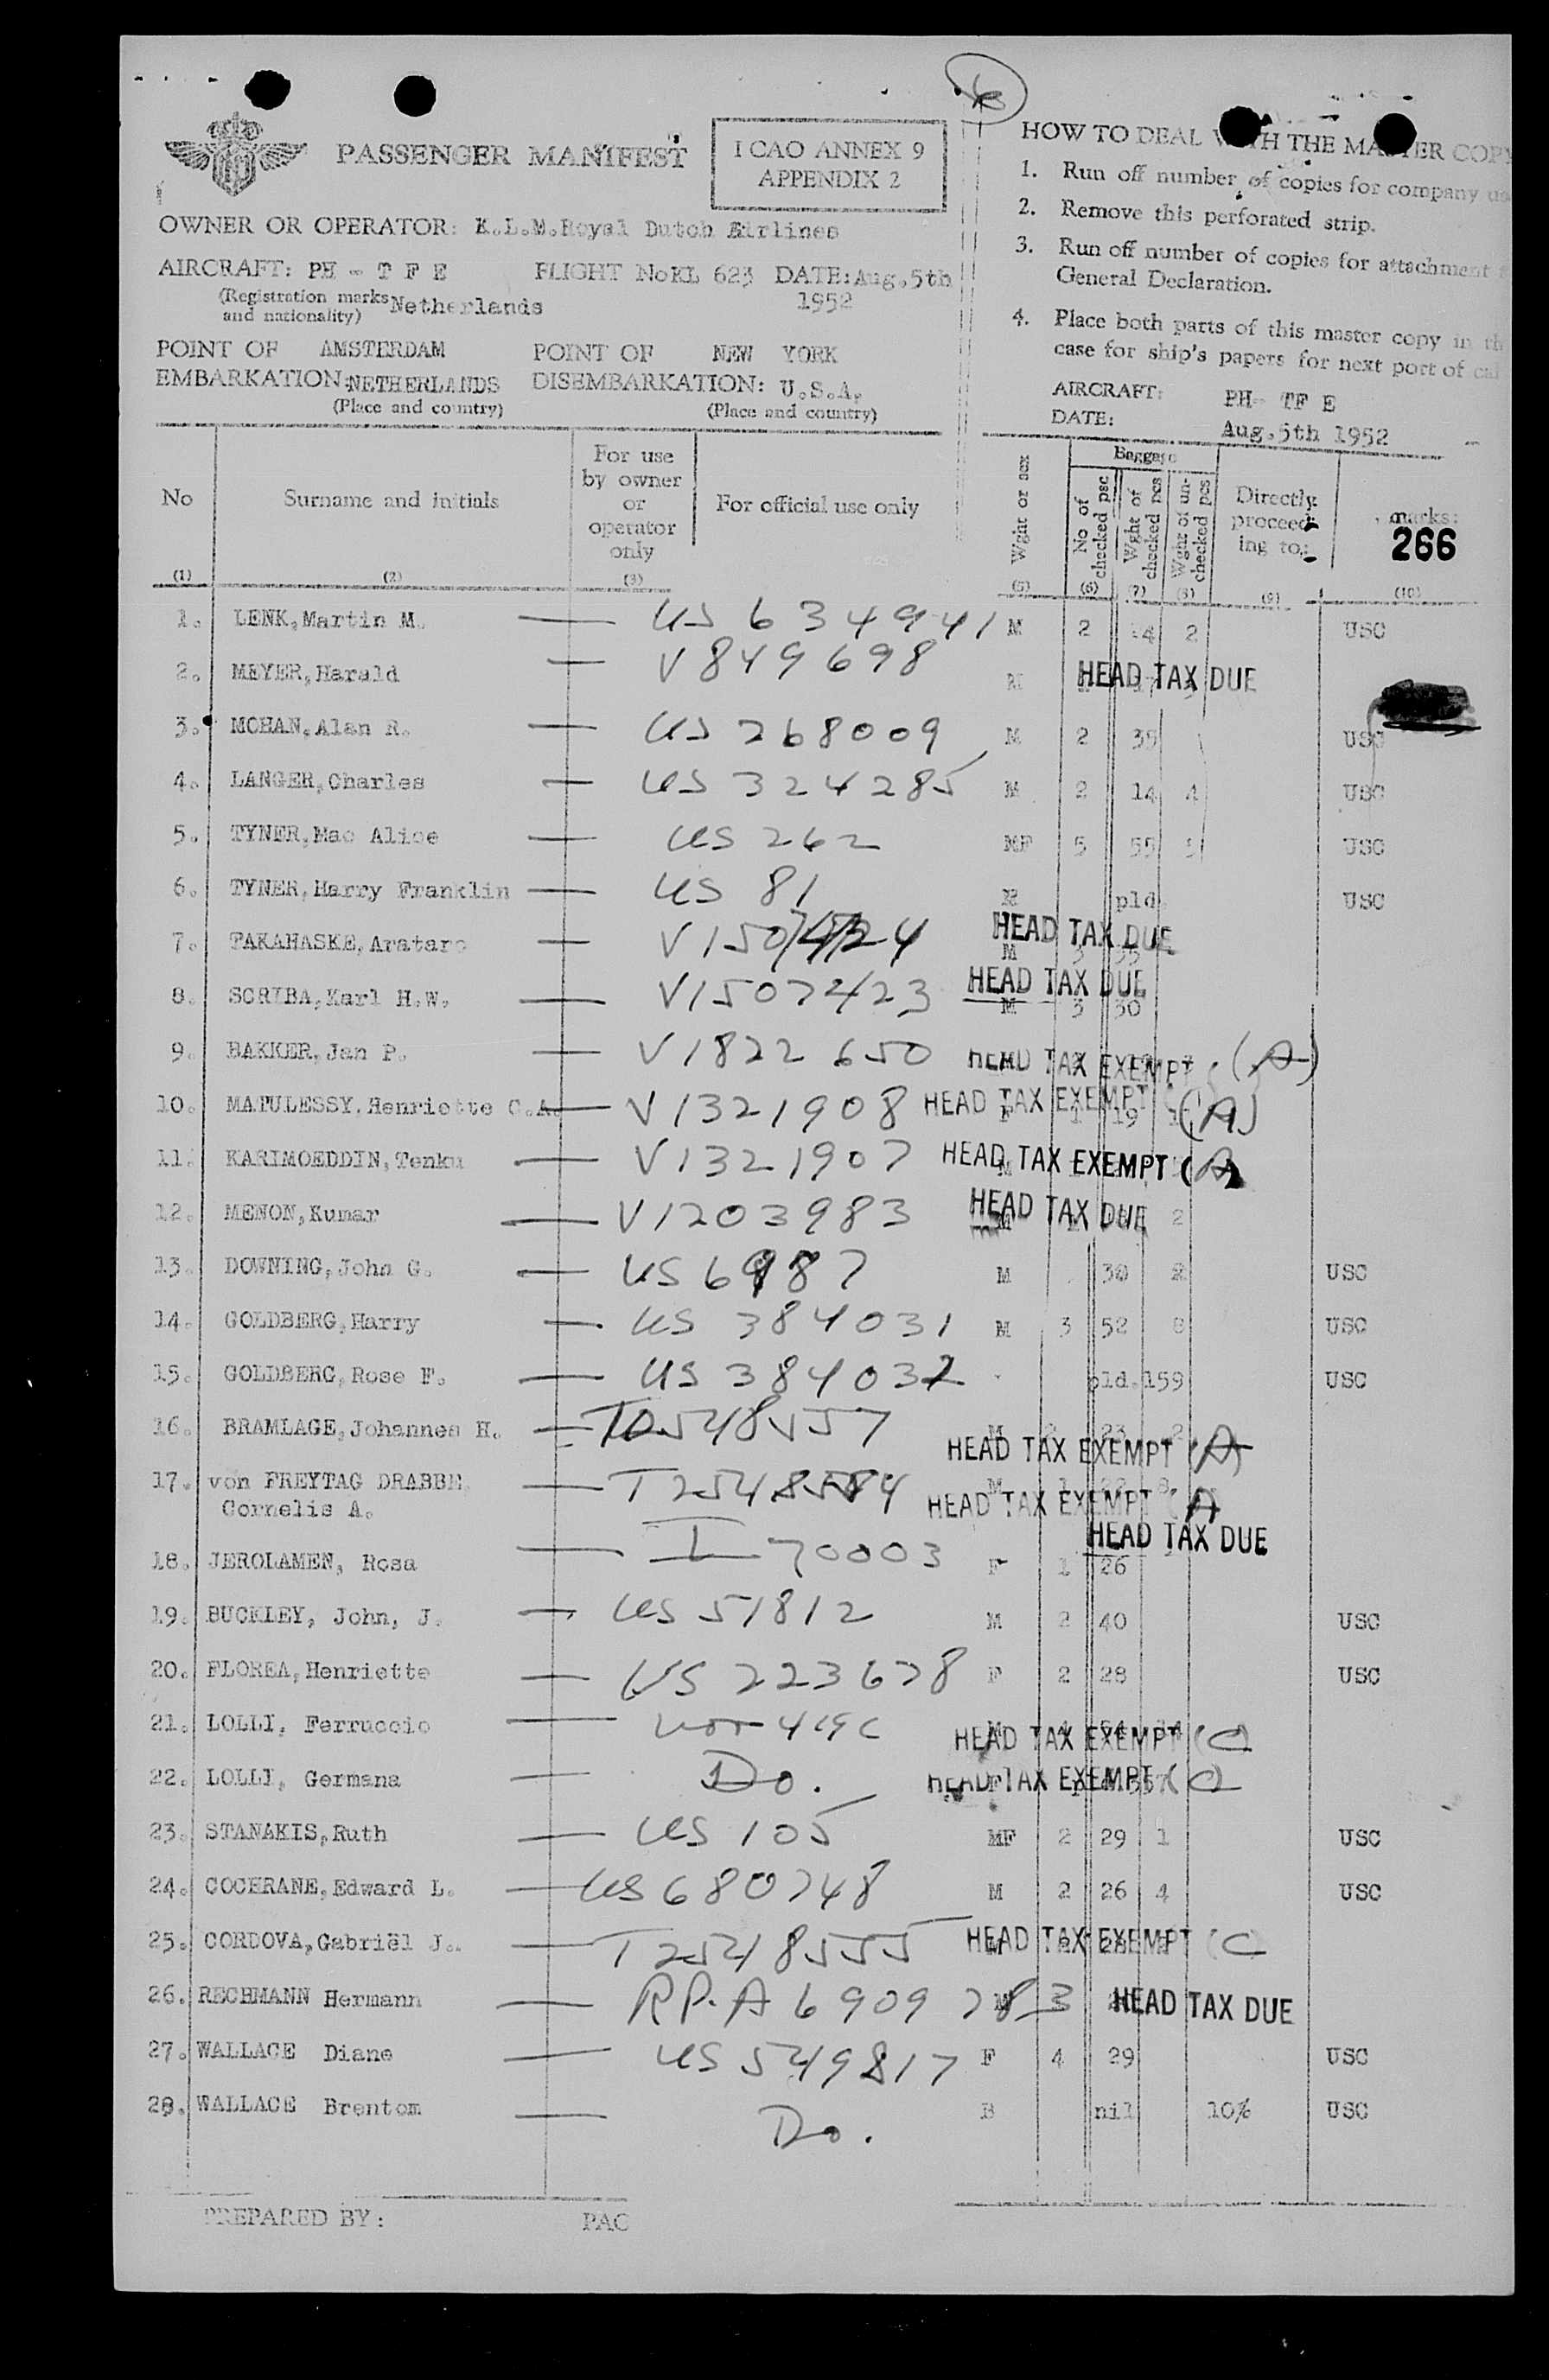 PASSENGER MANIFEST
I CAO ANNEX 9
APPENDIX 2
OWNER OR OPERATOR: K.L.M.Royal Dutch Airlines
AIRCRAFT: PH - T F E FLIGHT No KL 623 DATE: Aug.5th
1952
(Registration marks
and nationality) Netherlands
POINT OF AMSTERDAM POINT OF NEW YORK
EMBARKATION: NETHERLANDS DISEMBARKATION: U.S.A.
(Place and country) (Place and country)
HOW TO DEAL WITH THE MASTER COPY
1. Run off number of copies for company
2. Remove this perforated strip.
3. Run off number of copies for attachment
General Declaration.
4. Place both parts of this master copy in
case for ship's papers for next port of
AIRCRAFT: PH- TF E
DATE: Aug.5th 1952
No
Surname and initials
For use
by owner
or
operator
only
For official use only
Wght or sex
Baggage
No of
checked psc
Wght of
checked pcs
Wght of un-
checked pcs
Directly
proceed-
ing to:
marks:
266
(1) (2) (3) (5) (6) (7) (8) (9) (10)
1. LENK,Martin M. — US 634941 M 2 4 2 USC
2. MEYER,Harald — V 849698 M HEAD TAX DUE
3. MOHAN,Alan R. — US 268009 M 2 35 USC
4. LANGER,Charles — US 324285 M 2 14 4 USC
5. TYNER,Mac Alice — US 262 MF 5 55 5 USC
6. TYNER,Harry Franklin — US 81 M pld. USC
7. TAKAHASKE,Arataro — HEAD TAX DUE M 3 35
8. SCRIBA,Karl H.W. — V1507423 HEAD TAX DUE M 3 30
9. BAKKER,Jan P. — V1822650 HEAD TAX EXEMPT (A)
10. MATULESSY,Henriette C.A. — V1321908 HEAD TAX EXEMPT (A) F 1 19
11. KARIMOEDDIN,Tenku — V1321907 HEAD TAX EXEMPT (A) M
12. MENON,Kumar — V1203983 HEAD TAX DUE M 2
13. DOWNING,John G. — M 30 2 USC
14. GOLDBERG,Harry — US 384031 M 3 52 8 USC
15. GOLDBERG,Rose F. — US 384032 pld.159 USC
16. BRAMLAGE,Johannes H. — M 2 23 2 HEAD TAX EXEMPT (A)
17. von FREYTAG DRABBE, — M 1 HEAD TAX EXEMPT (A
Cornelis A.
18. JEROLAMEN, Rosa — I 70003 HEAD TAX DUE F 1 26
19. BUCKLEY, John, J. — US 51812 M 2 40 USC
20. FLOREA,Henriette — US 223678 F 2 28 USC
21. LOLLI, Ferruccio — M HEAD TAX EXEMPT (C)
22. LOLLI, Germana — Do. F HEAD TAX EXEMPT (C)
23. STANAKIS,Ruth — US 105 MF 2 29 1 USC
24. COCHRANE,Edward L. — US 680748 M 2 26 4 USC
25. CORDOVA,Gabriël J. — T 2548555 M HEAD TAX EXEMPT (C
26. RECHMANN Hermann — HEAD TAX DUE
27. WALLACE Diane — US 549817 F 4 29 USC
28. WALLACE Brentom — Do. B nil 10% USC
PREPARED BY: PAC